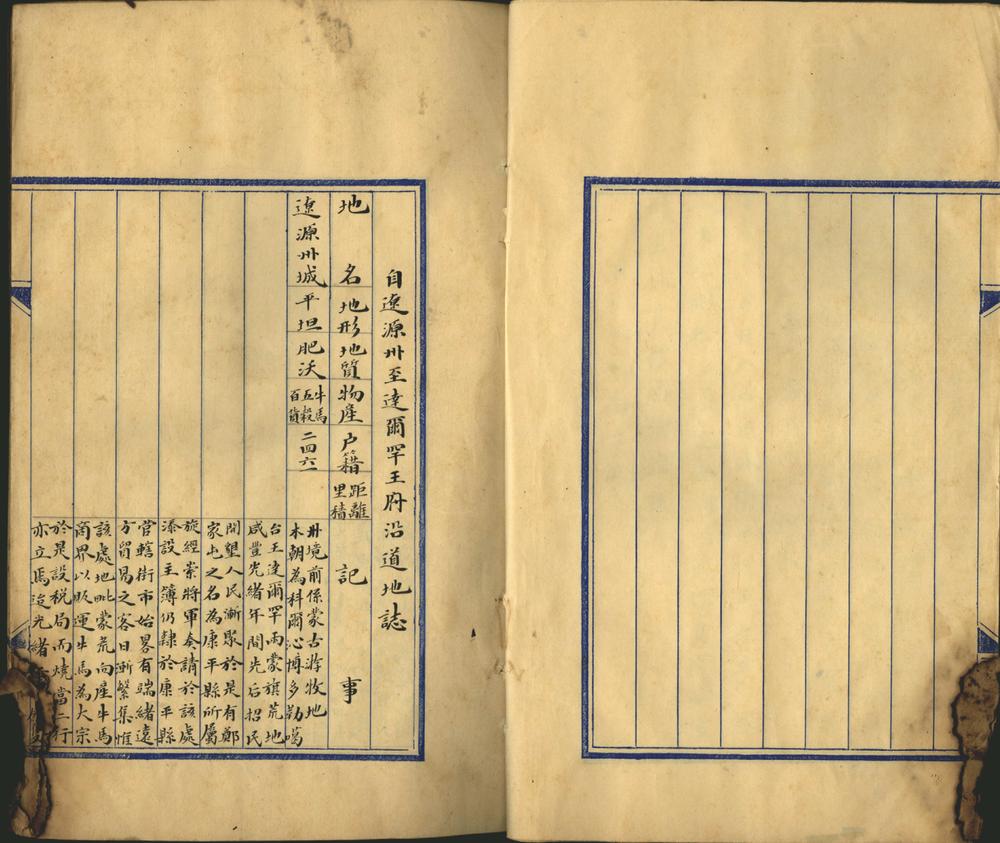 自遼源州至達爾罕王府沿道地誌
地名
地形
地質
物產
户籍
距離
里積
記事
遼源州城
平坦
肥沃
牛馬
五穀
百貨
二四六一
州境前係蒙古游牧地
本朝為科爾沁博多勒噶
台王達爾罕兩蒙旗荒地
咸豐光緒年間先后招民
開墾人民漸聚於是有鄭
家屯之名為康平縣所屬
旋經崇將軍奏請於該處
添設主簿仍隸於康平縣
管轄街市始畧有端緒遠
方貿易之客日漸繁集惟
該處地毗蒙荒向產牛馬
商界以販運牛馬為大宗
於是設税局而燒當二行
亦立焉迨光緒